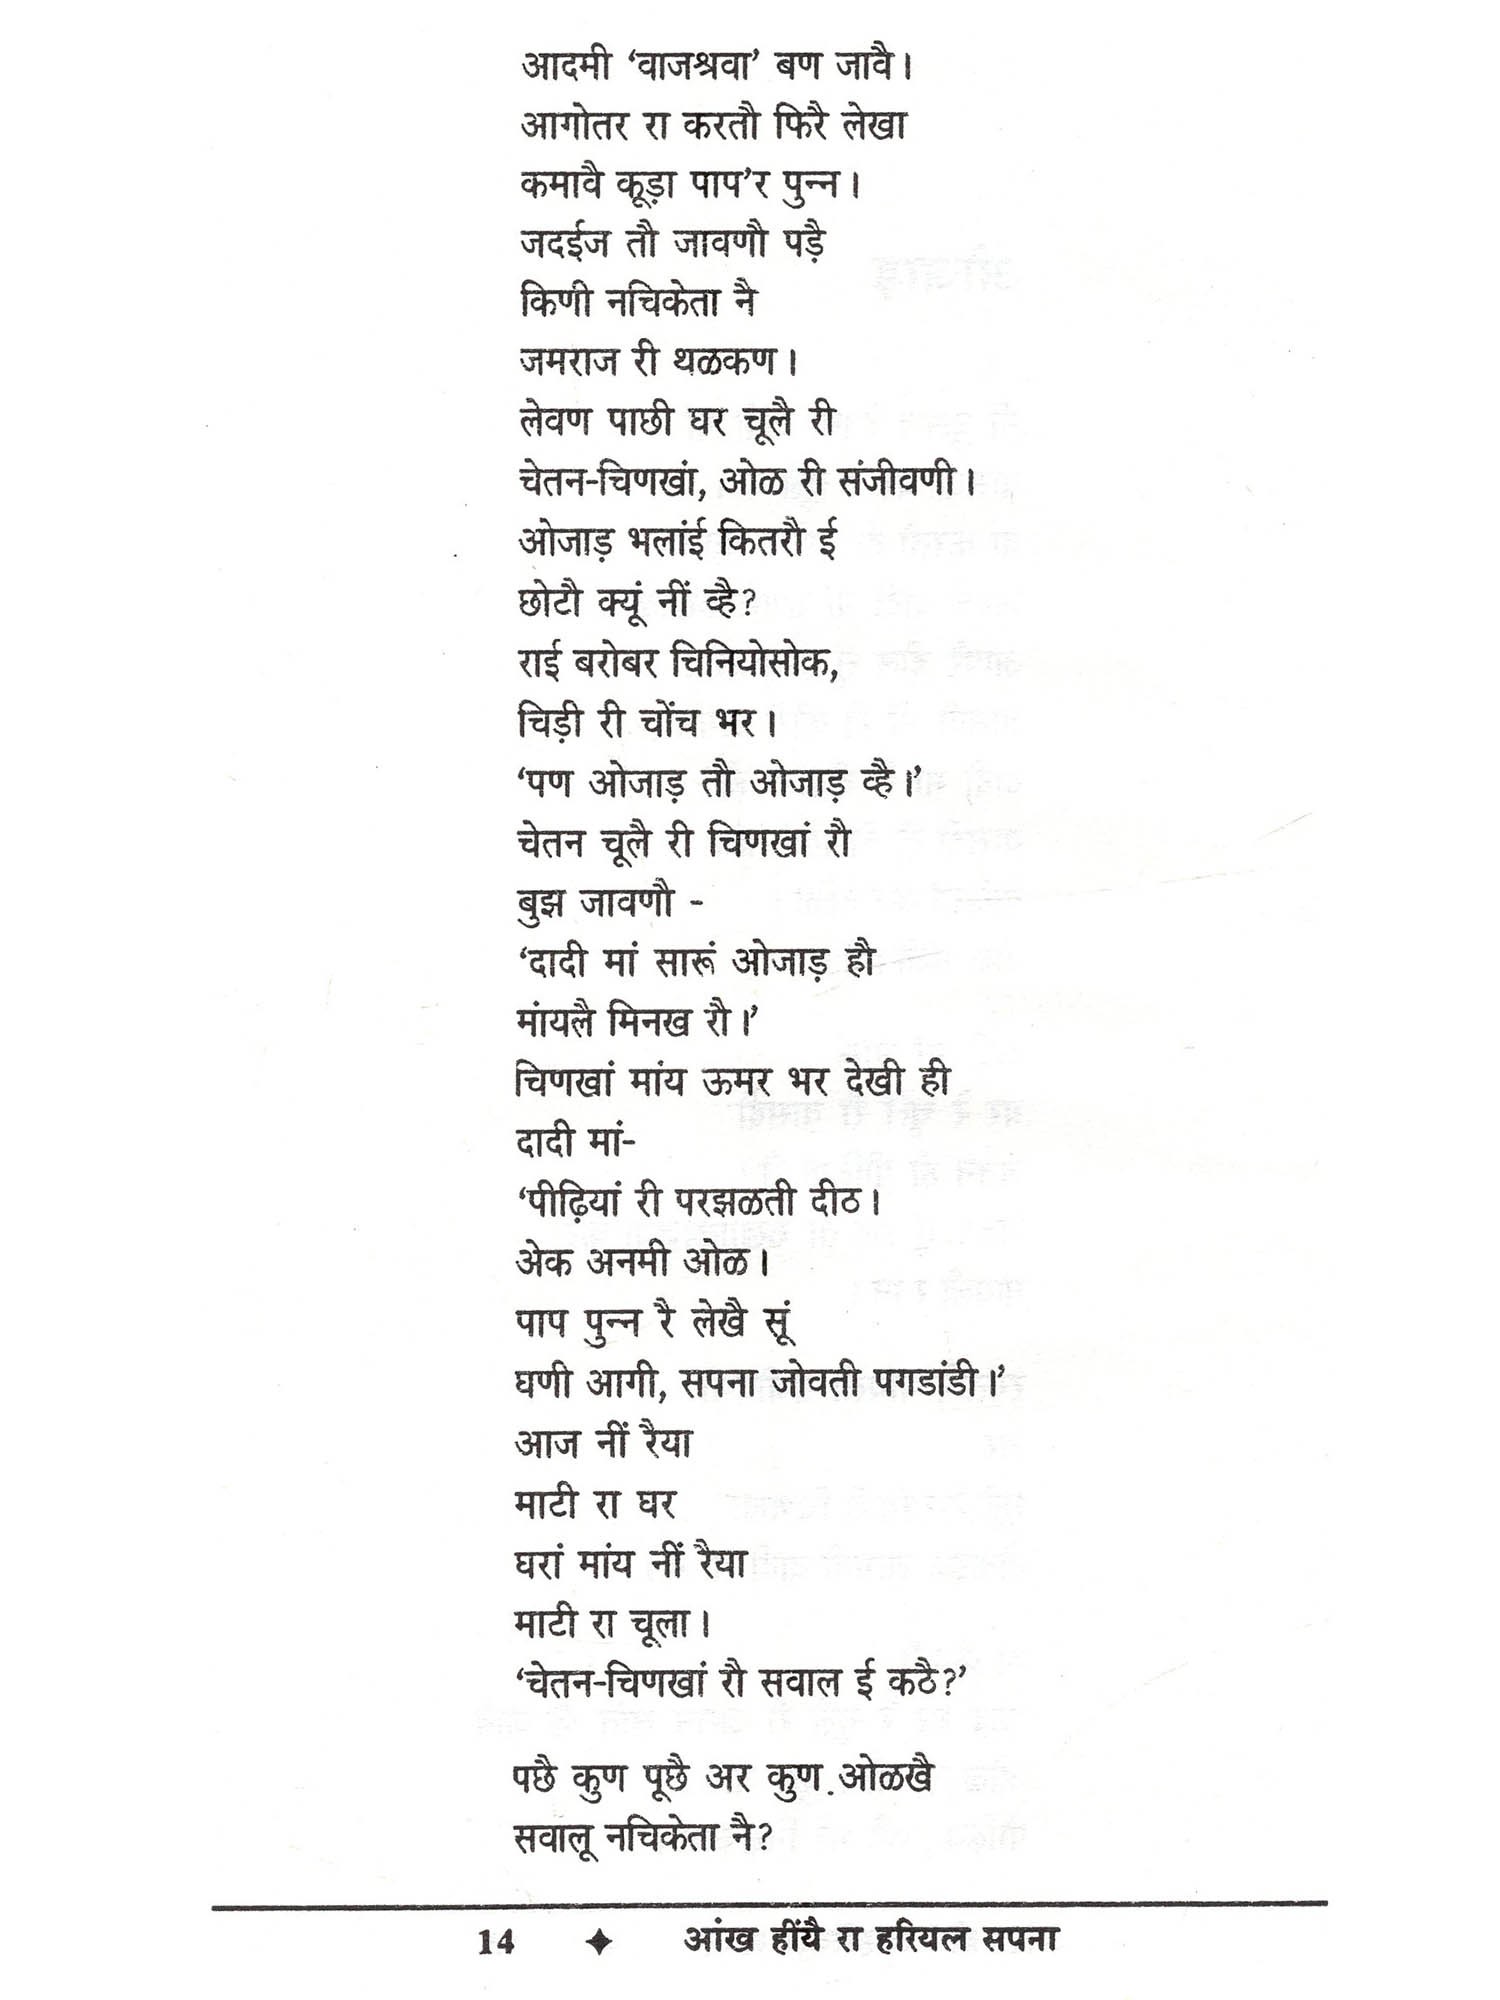 आदमी ‘वाजश्रवा’ बण जावै।
आगोतर रा करतौ फिरै लेखा
कमावै कूड़ा पाप’र पुन्न।
जदईज तौ जावणौ पड़ै
किणी नचिकेता नै
जमराज री थळकण।
लेवण पाछी घर चूलै री
चेतन-चिणखां, ओळ री संजीवणी।
ओजाड़ भलांई कितरौ ई
छोटौ क्यूं नीं व्है?
राई बरोबर चिनियोसोक,
चिड़ी री चोंच भर।
‘पण ओजाड़ तौ ओजाड़ व्है।’
चेतन चूलै री चिणखां रौ
बुझ जावणौ -
‘दादी मां सारूं ओजाड़ हौ
मांयलै मिनख रौ।’
चिणखां मांय ऊमर भर देखी ही
दादी मां-
‘पीढ़ियां री परझळती दीठ।
अेक अनमी ओळ।
पाप पुन्न रै लेखै सूं
घणी आगी, सपना जोवती पगडांडी।’
आज नीं रैया
माटी रा घर
घरां मांय नीं रैया
माटी रा चूला।
‘चेतन-चिणखां रौ सवाल ई कठै?’
पछै कुण पूछै अर कुण ओळखै
सवालू नचिकेता नै?
14 ✦ आंख हींयै रा हरियल सपना